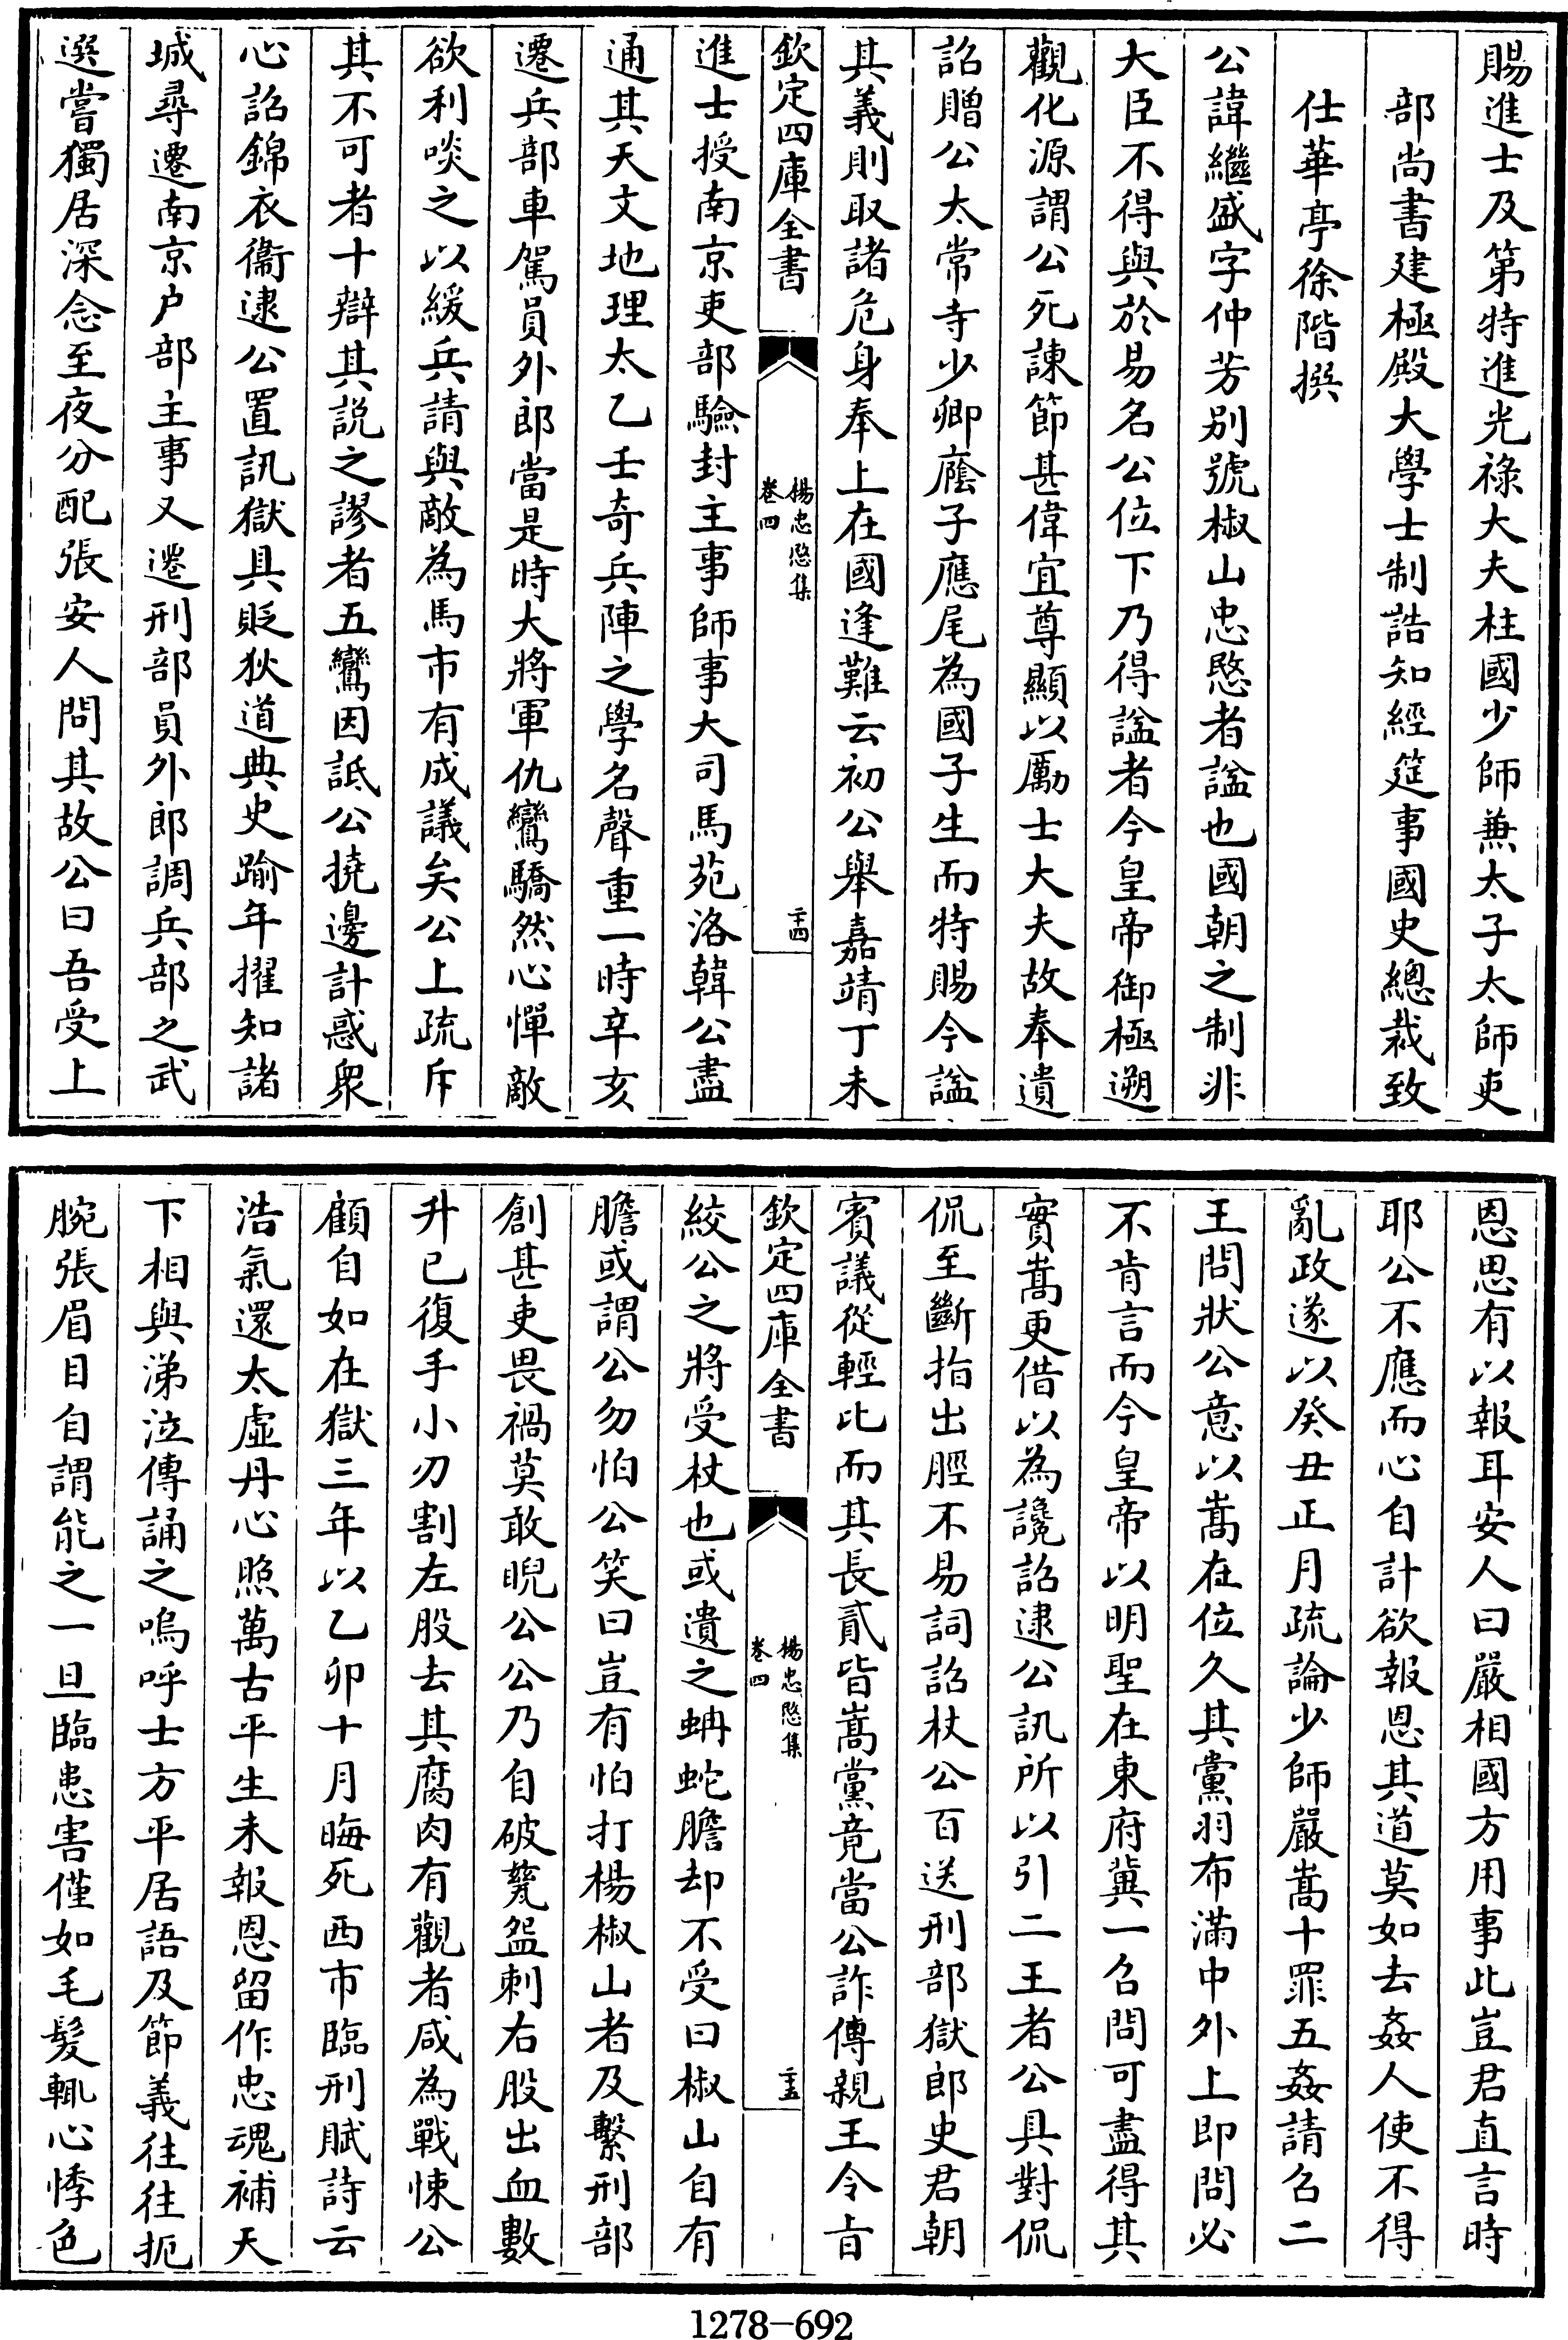 賜進士及第特進光祿大夫柱國少師兼太子太師吏
部尚書建極殿大學士制誥知經筵事國史總裁致
仕華亭徐階撰
公諱繼盛字仲芳别號椒山忠愍者諡也國朝之制非
大臣不得與於易名公位下乃得諡者今皇帝御極遡
觀化源謂公死諫節甚偉宜尊顯以厲士大夫故奉遺
詔贈公太常寺少卿廕子應尾為國子生而特賜今諡
其義則取諸危身奉上在國逢難云初公舉嘉靖丁未
欽定四庫全書
楊忠愍集
卷四
二十四
進士授南京吏部驗封主事師事大司馬苑洛韓公盡
通其天文地理太乙壬奇兵陣之學名聲重一時辛亥
遷兵部車駕員外郎當是時大將軍仇鸞驕然心憚敵
欲利啖之以緩兵請與敵為馬市有成議矣公上疏斥
其不可者十辯其說之謬者五鸞因詆公撓邊計惑衆
心詔錦衣衞逮公置訊獄具貶狄道典史踰年擢知諸
城尋遷南京户部主事又遷刑部員外郎調兵部之武
選嘗獨居深念至夜分配張安人問其故公曰吾受上
恩思有以報耳安人曰嚴相國方用事此豈君直言時
耶公不應而心自計欲報恩其道莫如去姦人使不得
亂政遂以癸丑正月疏論少師嚴嵩十罪五姦請召二
王問狀公意以嵩在位久其黨羽布滿中外上即問必
不肯言而今皇帝以明聖在東府冀一召問可盡得其
實嵩更借以為讒詔逮公訊所以引二王者公具對侃
侃至斷指出脛不易詞詔杖公百送刑部獄郎史君朝
賓議從輕比而其長貳皆嵩黨竟當公詐傳親王令旨
欽定四庫全書
楊忠愍集
卷四
二十五
絞公之將受杖也或遺之蚺蛇膽却不受曰椒山自有
膽或謂公勿怕公笑曰豈有怕打楊椒山者及繫刑部
創甚吏畏禍莫敢睨公公乃自破甆盌刺右股出血數
升已復手小刃割左股去其腐肉有觀者咸為戰悚公
顧自如在獄三年以乙卯十月晦死西市臨刑賦詩云
浩氣還太虛丹心照萬古平生未報恩留作忠魂補天
下相與涕泣傳誦之嗚呼士方平居語及節義往往扼
腕張眉目自謂能之一旦臨患害僅如毛髮輒心悸色
1278-692